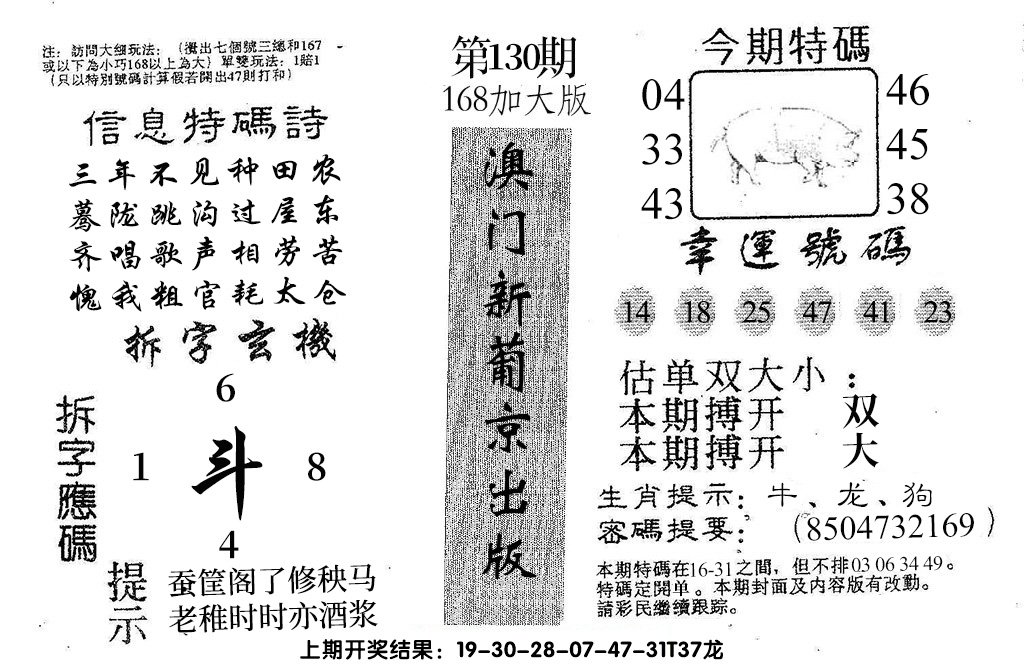 注：訪問大细玩法：（攪出七個號三總和167
或以下為小巧168以上為大）單雙玩法：1賠1
（只以特別號碼計算假若開出47則打和）
信息特碼詩
三年不见种田农
蓦陇跳沟过屋东
齐唱歌声相劳苦
愧我粗官耗太仓
拆字玄機
拆字應碼
6
1 斗 8
4
提示
蚕筐阁了修秧马
老稚时时亦酒浆
第130期
168加大版
澳门新葡京出版
今期特碼
04 46
33 45
43 38
幸運號碼
14 18 25 47 41 23
估单双大小：
本期搏开 双
本期搏开 大
生肖提示：牛、龙、狗
密碼提要：（8504732169）
本期特碼在16-31之間，但不排03 06 34 49。
特碼定開单。本期封面及内容版有改動。
請彩民繼續跟踪。
上期开奖结果：19-30-28-07-47-31T37龙